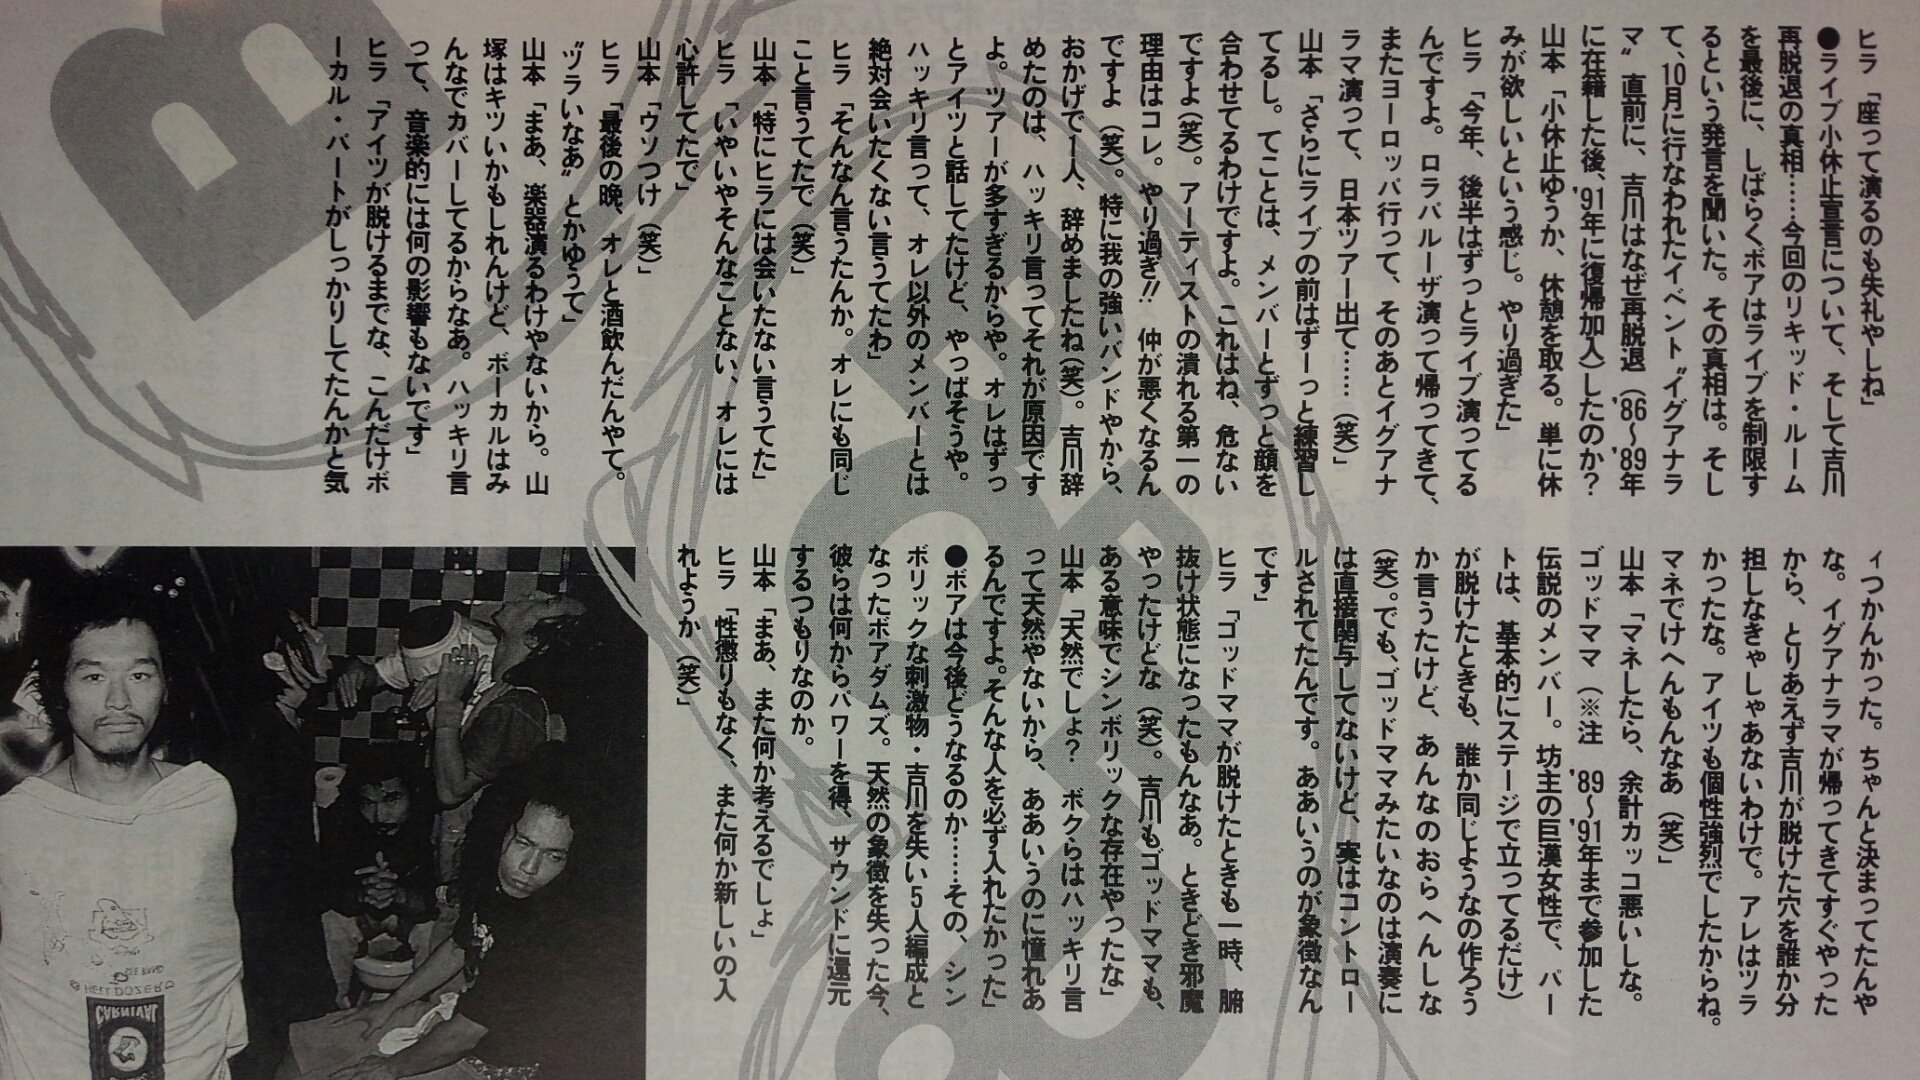 ヒラ「座って演るのも失礼やしね」
●ライブ小休止宣言について、そして吉川
再脱退の真相……今回のリキッド・ルーム
を最後に、しばらくボアはライブを制限す
るという発言を聞いた。その真相は。そし
て、10月に行なわれたイベント〝イグアナラ
マ〟直前に、吉川はなぜ再脱退（'86〜'89年
に在籍した後、'91年に復帰加入）したのか？
山本「小休止ゆうか、休憩を取る。単に休
みが欲しいという感じ。やり過ぎた」
ヒラ「今年、後半はずっとライブ演ってる
んですよ。ロラパルーザ演って帰ってきて、
またヨーロッパ行って、そのあとイグアナ
ラマ演って、日本ツアー出て……（笑）」
山本「さらにライブの前はずーっと練習し
てるし。てことは、メンバーとずっと顔を
合わせてるわけですよ。これはね、危ない
ですよ（笑）。アーティストの潰れる第一の
理由はコレ。やり過ぎ!! 仲が悪くなるん
ですよ（笑）。特に我の強いバンドやから、
おかげで1人、辞めましたね（笑）。吉川辞
めたのは、ハッキリ言ってそれが原因です
よ。ツアーが多すぎるからや。オレはずっ
とアイツと話してたけど、やっぱそうや。
ハッキリ言って、オレ以外のメンバーとは
絶対会いたくない言うてたわ」
ヒラ「そんなん言うたんか。オレにも同じ
こと言うてたで（笑）」
山本「特にヒラには会いたない言うてた」
ヒラ「いやいやそんなことない、オレには
心許してたで」
山本「ウソつけ（笑）」
ヒラ「最後の晩、オレと酒飲んだんやて。
〝ヅラいなあ〟とかゆうて」
山本「まあ、楽器演るわけやないから。山
塚はキツいかもしれんけど、ボーカルはみ
んなでカバーしてるからなあ。ハッキリ言
って、音楽的には何の影響もないです」
ヒラ「アイツが脱けるまでな、こんだけボ
ーカル・パートがしっかりしてたんかと気
ィつかんかった。ちゃんと決まってたんや
な。イグアナラマが帰ってきてすぐやった
から、とりあえず吉川が脱けた穴を誰か分
担しなきゃしゃあないわけで。アレはツラ
かったな。アイツも個性強烈でしたからね。
マネでけへんもんなあ（笑）」
山本「マネしたら、余計カッコ悪いしな。
ゴッドママ（※注 '89〜'91年まで参加した
伝説のメンバー。坊主の巨漢女性で、パー
トは、基本的にステージで立ってるだけ）
が脱けたときも、誰か同じようなの作ろう
か言うたけど、あんなのおらへんしな
（笑）。でも、ゴッドママみたいなのは演奏に
は直接関与してないけど、実はコントロー
ルされてたんです。ああいうのが象徴なん
です」
ヒラ「ゴッドママが脱けたときも一時、腑
抜け状態になったもんなあ。ときどき邪魔
やったけどな（笑）。吉川もゴッドママも、
ある意味でシンボリックな存在やったな」
山本「天然でしょ？ ボクらはハッキリ言
って天然やないから、ああいうのに憧れあ
るんですよ。そんな人を必ず入れたかった」
●ボアは今後どうなるのか……その、シン
ボリックな刺激物・吉川を失い5人編成と
なったボアダムズ。天然の象徴を失った今、
彼らは何からパワーを得、サウンドに還元
するつもりなのか。
山本「まあ、また何か考えるでしょ」
ヒラ「性懲りもなく、また何か新しいの入
れようか（笑）」
HELLDOZERS
CARNIVAL